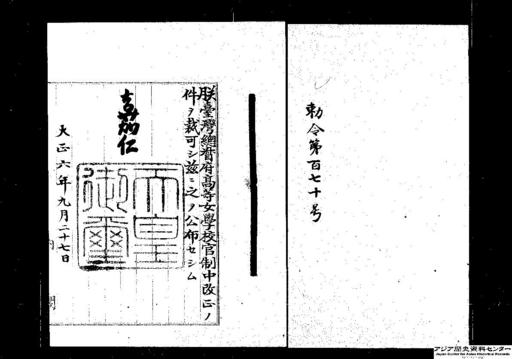 勅令第百七十号
朕臺灣總督府高等女學校官制中改正ノ
件ヲ裁可シ茲ニ之ヲ公布セシム
嘉仁
天皇
御璽
大正六年九月二十七日
アジア歴史資料センター
Japan Center for Asian Historical Records